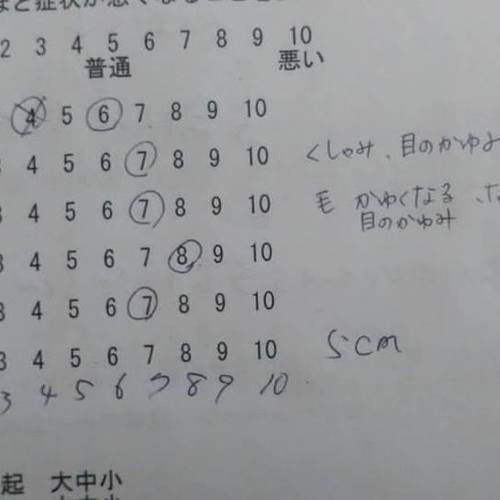 ど症状が悪くなる
2 3 4 5 6 7 8 9 10
普通 悪い
4 5 6 7 8 9 10
3 4 5 6 7 8 9 10 くしゃみ、目のかゆみ
3 4 5 6 7 8 9 10 毛 かゆくなる、
目のかゆみ
3 4 5 6 7 8 9 10
3 4 5 6 7 8 9 10
3 4 5 6 7 8 9 10 5cm
3 4 5 6 7 8 9 10
起 大中小